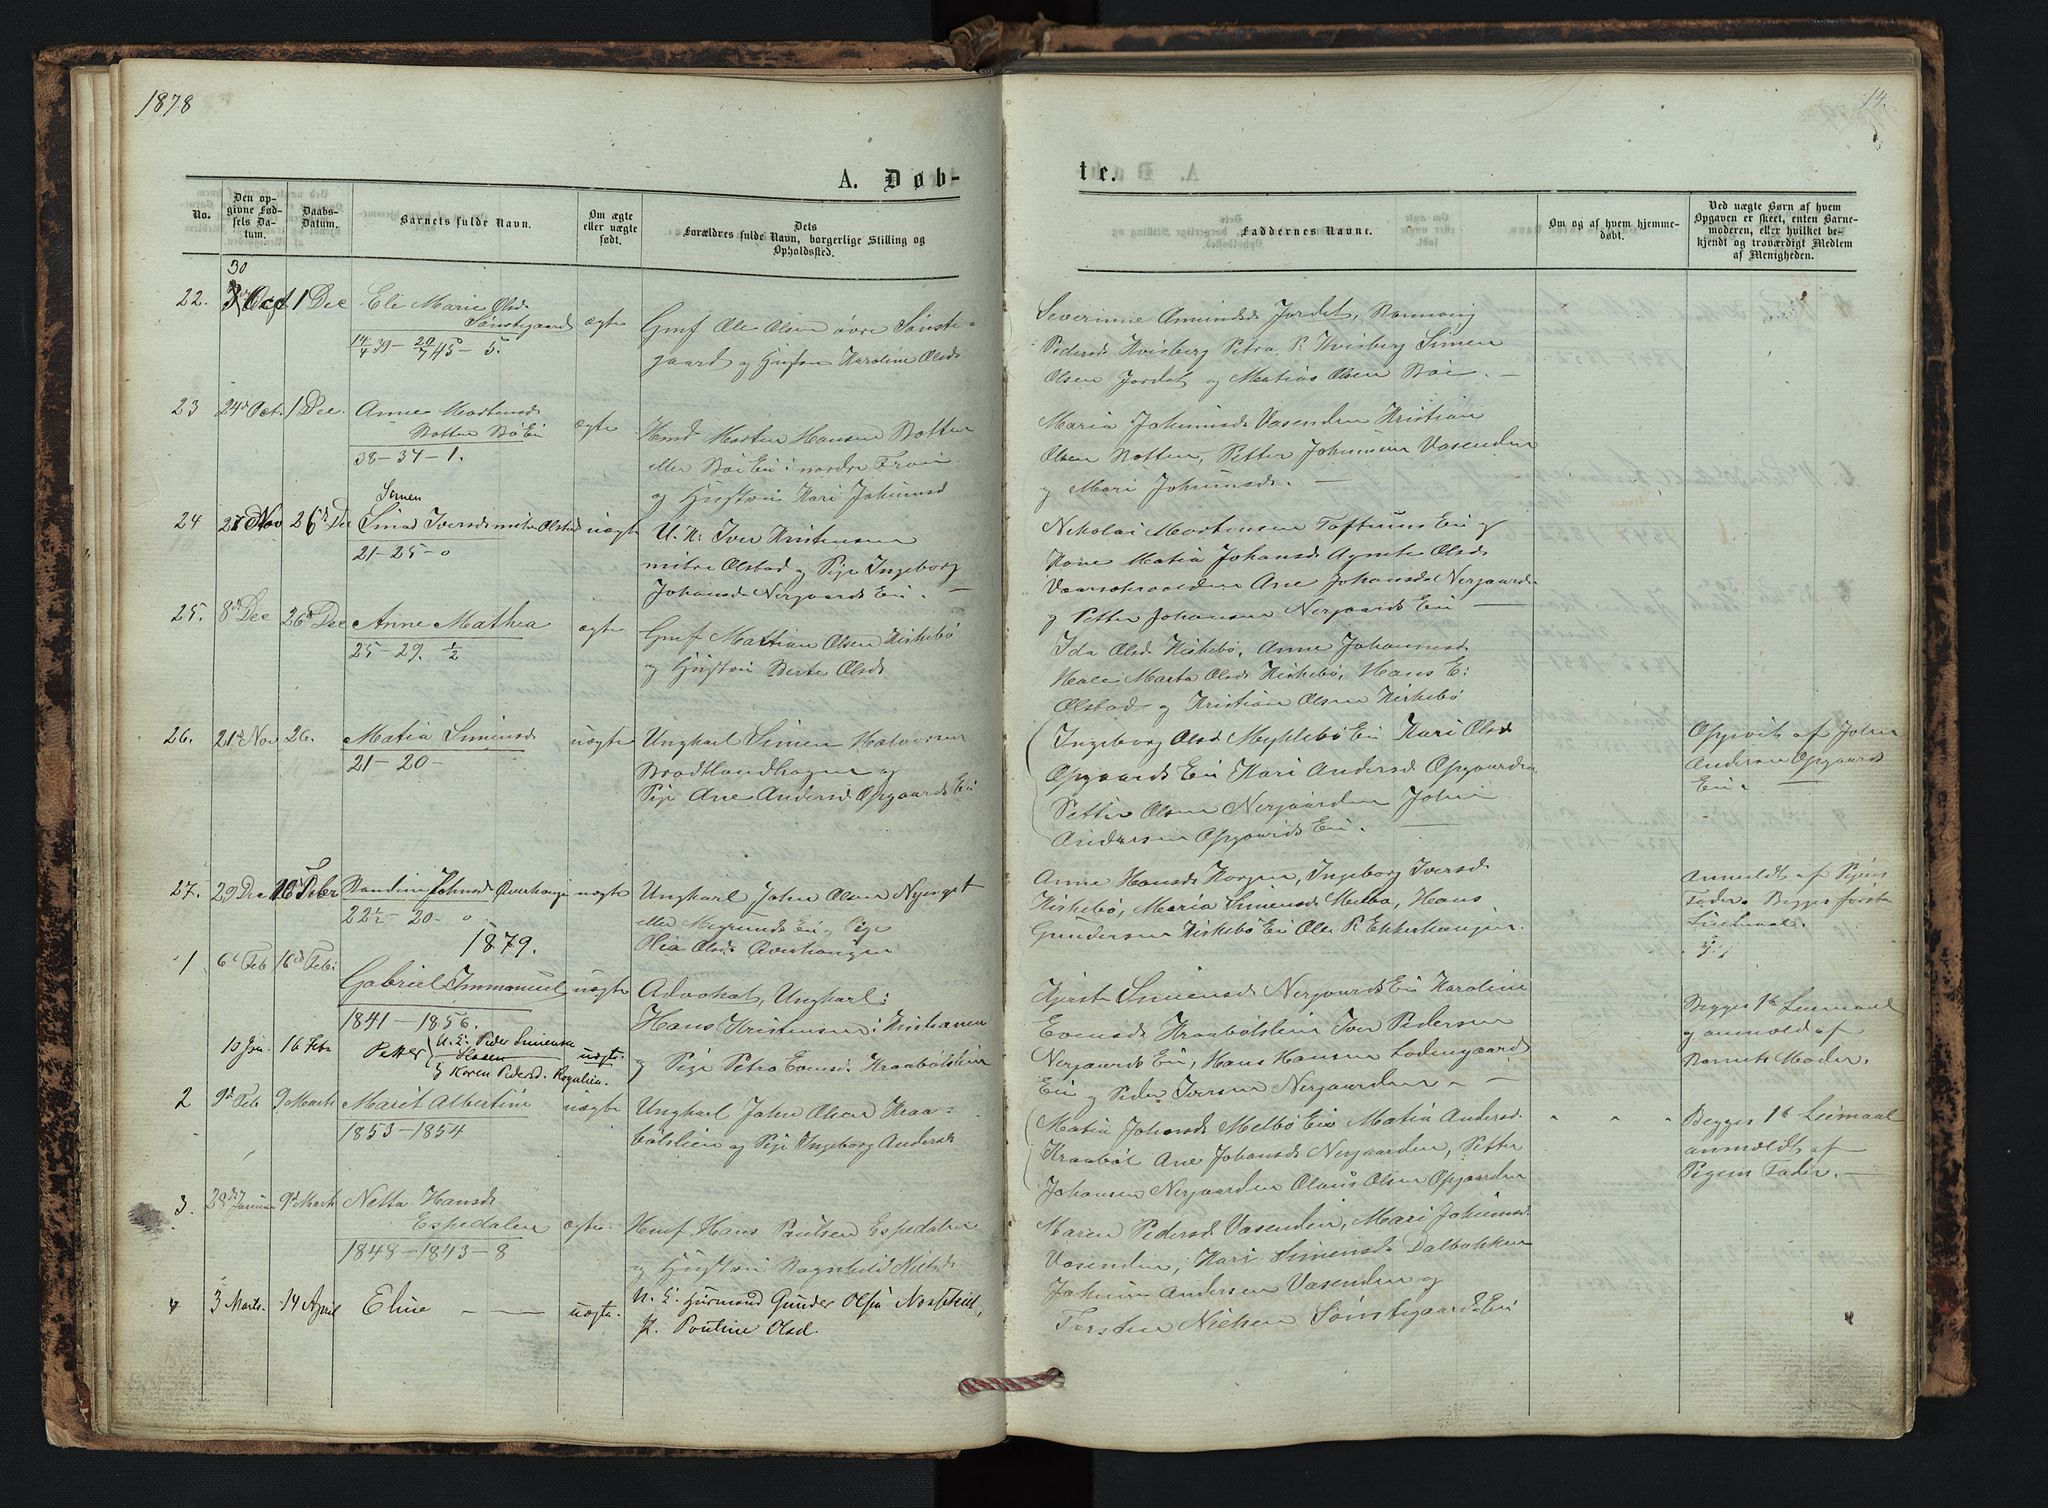 1878
14.
A. Døb-
te.
No.
Den op-
givne Fød-
sels Da-
tum.
Daabs-
Datum.
Barnets fulde Navn.
Om ægte
eller uægte
født.
Dets
Forældres fulde Navn, borgerlige Stilling og
Opholdssted.
Faddernes Navne.
Om og af hvem hjemme-
døbt.
Ved uægte Børn af hvem
Opgaven er skeet, enten Barne-
moderen, eller hvilket be-
kjendt og troværdigt Medlem
af Menigheden.
30
22. Oct 1 Dec Eli Marie Olsd.
Sønstegaard ægte
14/4 39 — 20/7 45 — 5.
Gmf Ole Olsen øvre Sønste-
gaard og Hustru Karoline Olsd
Severinne Amundsd Jordet, Ronnoug
Pedersd Kvisberg Petra P. Kvisberg Simen
Olsen Jordet og Matias Olsen Bøe. —
23 24d Oct. 1 Dec. Anne Mortensd
Botten Bø Ei ægte
38 — 34 — 1.
Hmd Morten Hansen Botten
eller Bøe Ei i nordre Fron
og Hustru Kari Johannsd
Maria Johannsd Vasenden Kristian
Olsen Botten, Petter Johannsen Vasenden
og Mari Johannsd. —
24 27 Nov 26d Dec Sina Iversd mitre Olstad uægte
21 — 25 — 0
U. K: Iver Kristensen
mitre Olstad og Pige Ingeborg
Johansd Nergaards Ei. —
Nikolai Mortensen Toftums Ei og
Kone Matia Johansd Agnete Olsd
Ane Johansd Nergaarden
og Petter Johansen Nergaards Ei —
25. 8d Dec 26d Dec Anne Mathea ægte
25 — 29. 1/2
Gmf Mattian Olsen Kirkebø
og Hustru Berte Olsd
Ida Olsd Kirkebø, Anne Johannesd
Hole Marta Olsd Kirkebø, Hans E:
Olstad og Kristian Olsen Kirkebø
26. 21d Nov 26. Matia Simensd uægte
21 — 20 —
Ungkarl Simen Halvorsen
Bradtlandhagen og
Pige Ane Andersd Opgaards Ei
Ingeborg Olsd Myklebø Ei Kari Olsd
Opgaards Ei Kari Andersd Opgaarden
Petter Olsen Nergaarden Johan
Andersen Opgaards Ei. —
Opgivit af Johan
Andersen Opgaards
Ei. —
27. 29 Dec 16 Febr Randine Johnsd Øverhaugen uægte
22½ — 20 — 0
Ungkarl John Olsen Nyenget
eller Megrunds Ei og Pige
Olia Olsd Øverhaugen
Anne Hansd Korpen, Ingeborg Iversd
Kirkebø, Maria Simensd Melbø, Hans
Gundersen Kirkebø Ei Ole P. Ekkerhaugen.
Anmeldt af Pigens
Fader. Begges første
Leiermaal.
1879.
1 6d Feb 16d Feb: Gabriel Immanuel uægte
1841 — 1856.
Advokat, Ungkarl:
Hans Kristensen i Kristiania
og Pige Petra Evensd: Kraabølslien
Kjersti Simensd Nergaards Ei Karoline
Evensd Kraabølslien Iver Pedersen
Nergaards Ei, Hans Hansen Lodengaard
Ei og Peder Iversen Nergaarden —
Begges 1ste Leiermaal
og anmeldt af
Barnets Moder.
10 Jan. 16 Febr Petter U. K. Peder Simensen
og Karen Pedersd. Rogalien. uægte.
2 9d Feb 9 Marts Marit Albertine uægte
1853 — 1854
Ungkarl John Olsen Kraa-
bølslien og Pige Ingeborg Andersd
Matia Johansd Melbø Ei Matia Andersd
Kraabøl Ane Johansd Nergaarden, Petter
Johansen Nergaarden Olaus Olsen Opgaarden
Begges 1ste Leiermaal
anmeldt af
Pigens Fader. —
3. 28d Januar 9d Marts Netta Hansd
Espedalen ægte.
1848 — 1843 — 8
Hmf Hans Poulsen Espedalen
og Hustru Ragnhild Nielsd
Maren Pedersd Vasenden, Mari Johannsd
Vasenden, Kari Simensd Dalbakken
Johan Andersen Vasenden og
Torsten Nielsen Sønstegaards Ei
4 3 Marts. 14 April Eline — — uægte.
U. K. Huusmand Gunder Olsen
P. Pouline Olsd.